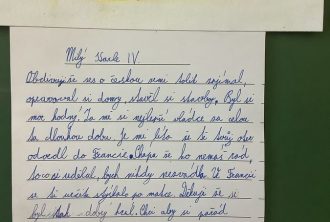 Milý Karle IV
Obdivuji že ses o českou zemi tolik zajímal,
opravoval si domy stavěl si stavby. Byl si
moc hodný. Za mě si nejlepší vládce za celou
tu dlouhou dobu. Je mi líto že tě tvůj otec
odvedl do Francie. Chápu že ho nemáš rád,
to co si udělal, bych nikdy nesvedla. Ve Francii
se ti určitě stýskalo po mamce. Děkuji že si
byl tak dobrý král. Chci aby si